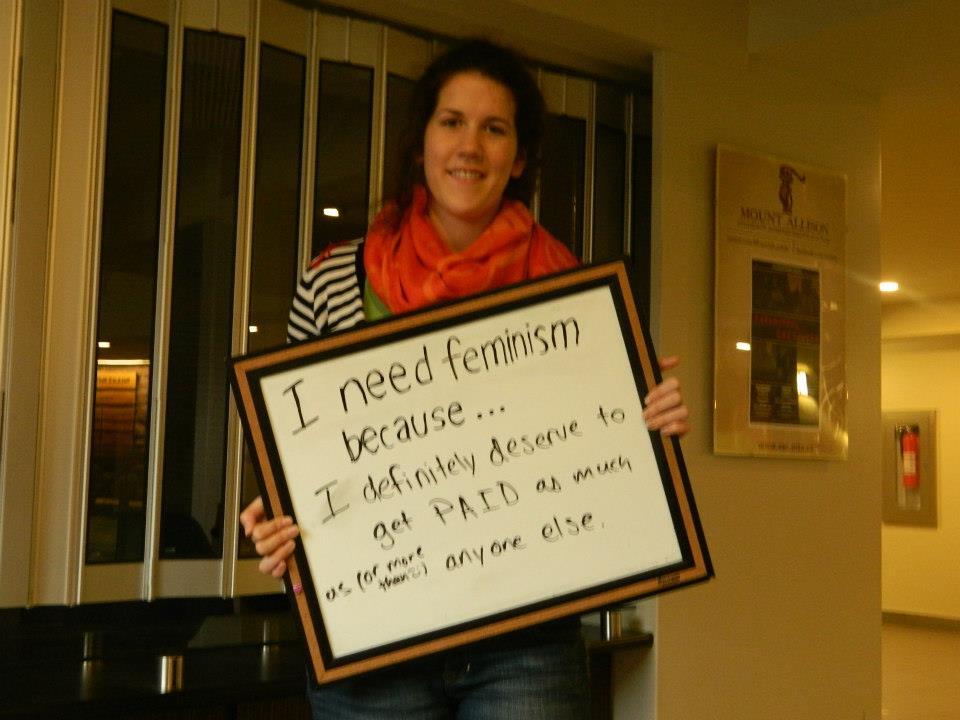 I need feminism
because...
I definitely deserve to
get PAID as much
as (or more
than☺) anyone else.
MOUNT ALLISON